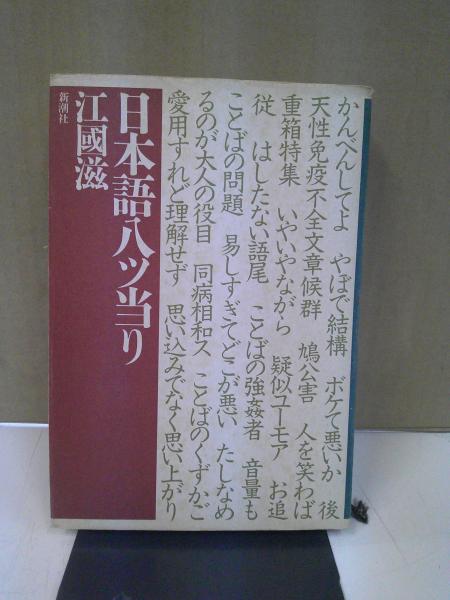 かんべんしてよ　やぼで結構　ボケて悪いか　後
天性免疫不全文章候群　鳩公害　人を笑わば
重箱特集　いやいやながら　疑似ユーモア　お追
従　はしたない語尾　ことばの強姦者　音量も
ことばの問題　易しすぎてどこが悪い　たしなめ
るのが大人の役目　同病相和ス　ことばのくずかご
愛用すれど理解せず　思い込みでなく思い上がり
日本語八ツ当り
江國滋
新潮社